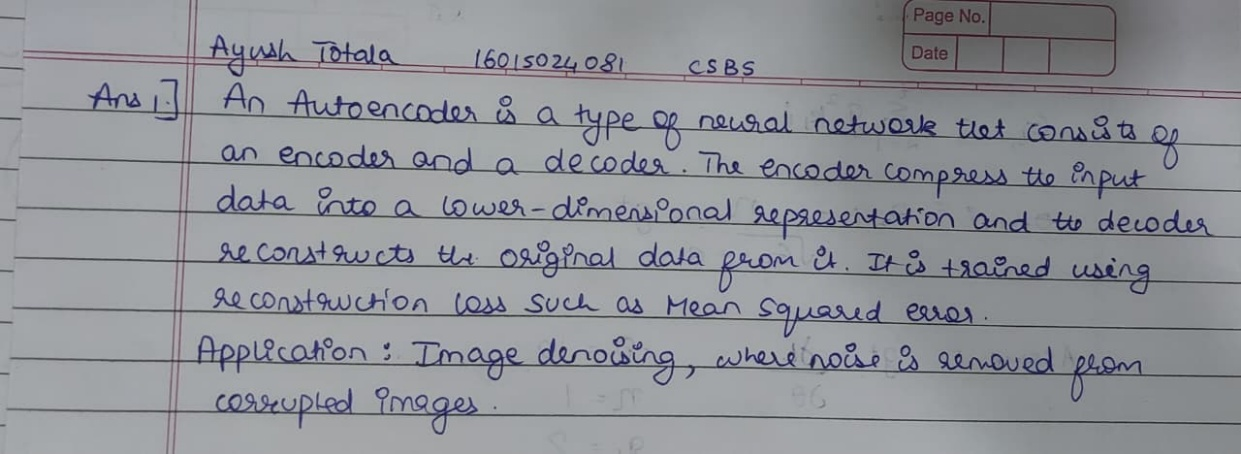 Page No.
Date
Ayush Totala 16015024081 CSBS
Ans 1.] An Autoencoder is a type of neural network that consists of
an encoder and a decoder. The encoder compress the input
data into a lower-dimensional representation and the decoder
reconstructs the original data from it. It is trained using
reconstruction loss such as Mean squared error.
Application : Image denoising, where noise is removed from
corrupted images.